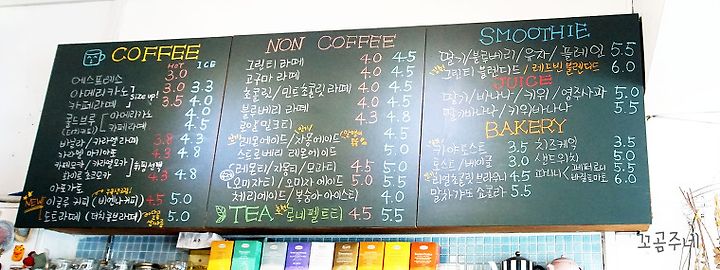 COFFEE
HOT ICE
에스프레소 3.0
아메리카노 3.0 3.3
카페라떼 size up! 3.5 4.0
콜드브루 아메리카노 4.0
(더치커피) 카페라떼 4.5
바닐라/카라멜라떼 3.8 4.3
카라멜 마끼아또 4.3 4.8
카페모카/카라멜모카 휘핑선택
화이트초코모카 4.3 4.8
아포가토
NEW 이글루 커피(비엔나커피) 4.5 5.0
도트라떼 (더치큐브라떼) 5.0
NON COFFEE
그린티 라떼 4.0 4.5
고구마 라떼 4.0 4.5
초콜릿/민트초콜릿 라떼 4.0 4.5
블루베리 라떼 4.3 4.8
로얄 밀크티
레몬에이드/자몽에이드
스트로베리 레몬에이드
레몬티/자몽티/모과티 4.5 5.0
오미자티/오미자 에이드 5.0 5.5
체리에이드/복숭아 아이스티 4.0
TEA 로네펠트티 4.5 5.5
SMOOTHIE
딸기/블루베리/유자/플레인 5.5
그린티 블렌디드/레드빈 블렌디드 6.0
JUICE
딸기/바나나/키위/영주사과 5.0
딸기바나나/키위바나나 5.5
BAKERY
카야토스트 3.5 치즈케익 3.5
토스트/베이글 3.0 샌드위치 5.0
브라우니 4.5 파니니 5.5
6.0
5.5
꼬곰주네